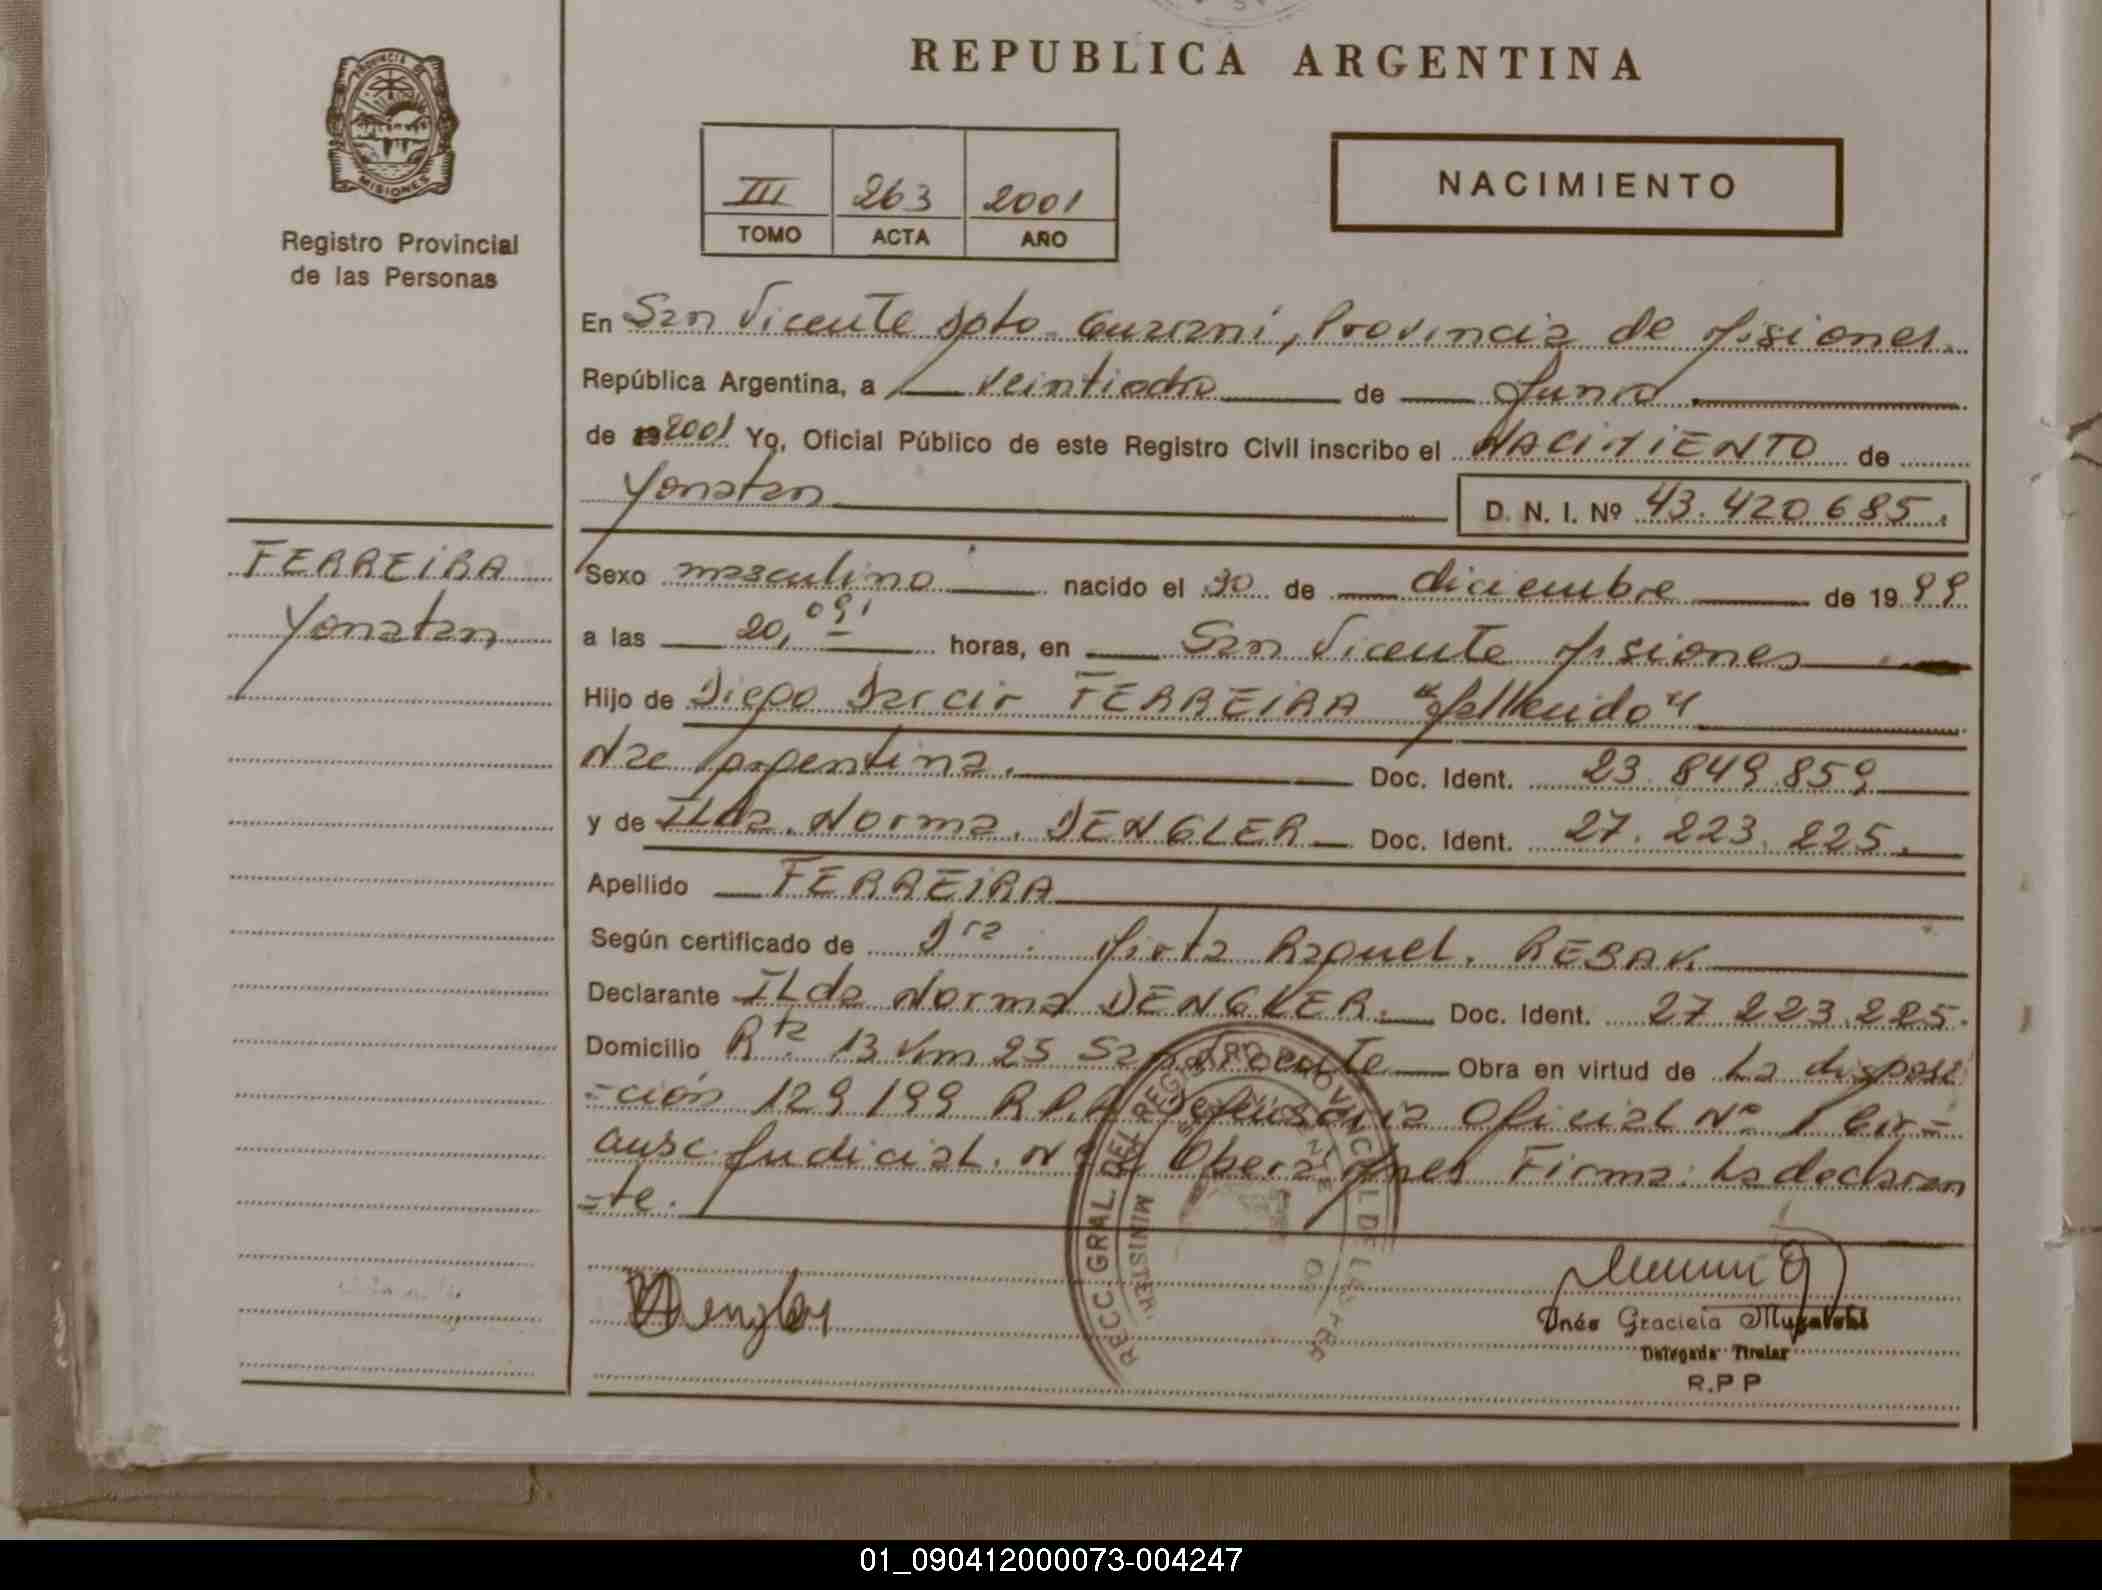 REPUBLICA ARGENTINA
PROVINCIA DE
MISIONES
Registro Provincial
de las Personas
III 263 2001
TOMO ACTA AÑO
NACIMIENTO
En San Vicente Dpto. Guaraní, Provincia de Misiones.
República Argentina, a veintiocho de Junio
de 2001 Yo, Oficial Público de este Registro Civil inscribo el NACIMIENTO de
Yonatan D. N. I. Nº 43.420685.
FERREIRA
Yonatan
Sexo masculino nacido el 30 de diciembre de 1999
a las 20,09' horas, en San Vicente Misiones
Hijo de Diego Darcir FERREIRA "fallecido"
Nac Argentina. Doc. Ident. 23.849.859
y de ILda. Norma. DENGLER Doc. Ident. 27.223.225.
Apellido FERREIRA
Según certificado de Dra. Mirta Raquel. REBAK
Declarante ILda Norma DENGLER. Doc. Ident. 27 223.225.
Domicilio Rta. 13 Km 25 San Vicente Obra en virtud de La disposi
=ción 129/99 R.P.P. Defensoria Oficial Nº 1 Cir=
cunsc Judicial. Nº Obera Mnes Firma: La declaran
=te.
Dengler
Inés Graciela
Delegada Titular
R.P P
RECC. GRAL. DEL REGISTRO PROVINCIAL DE LAS
MINISTER
01_090412000073-004247